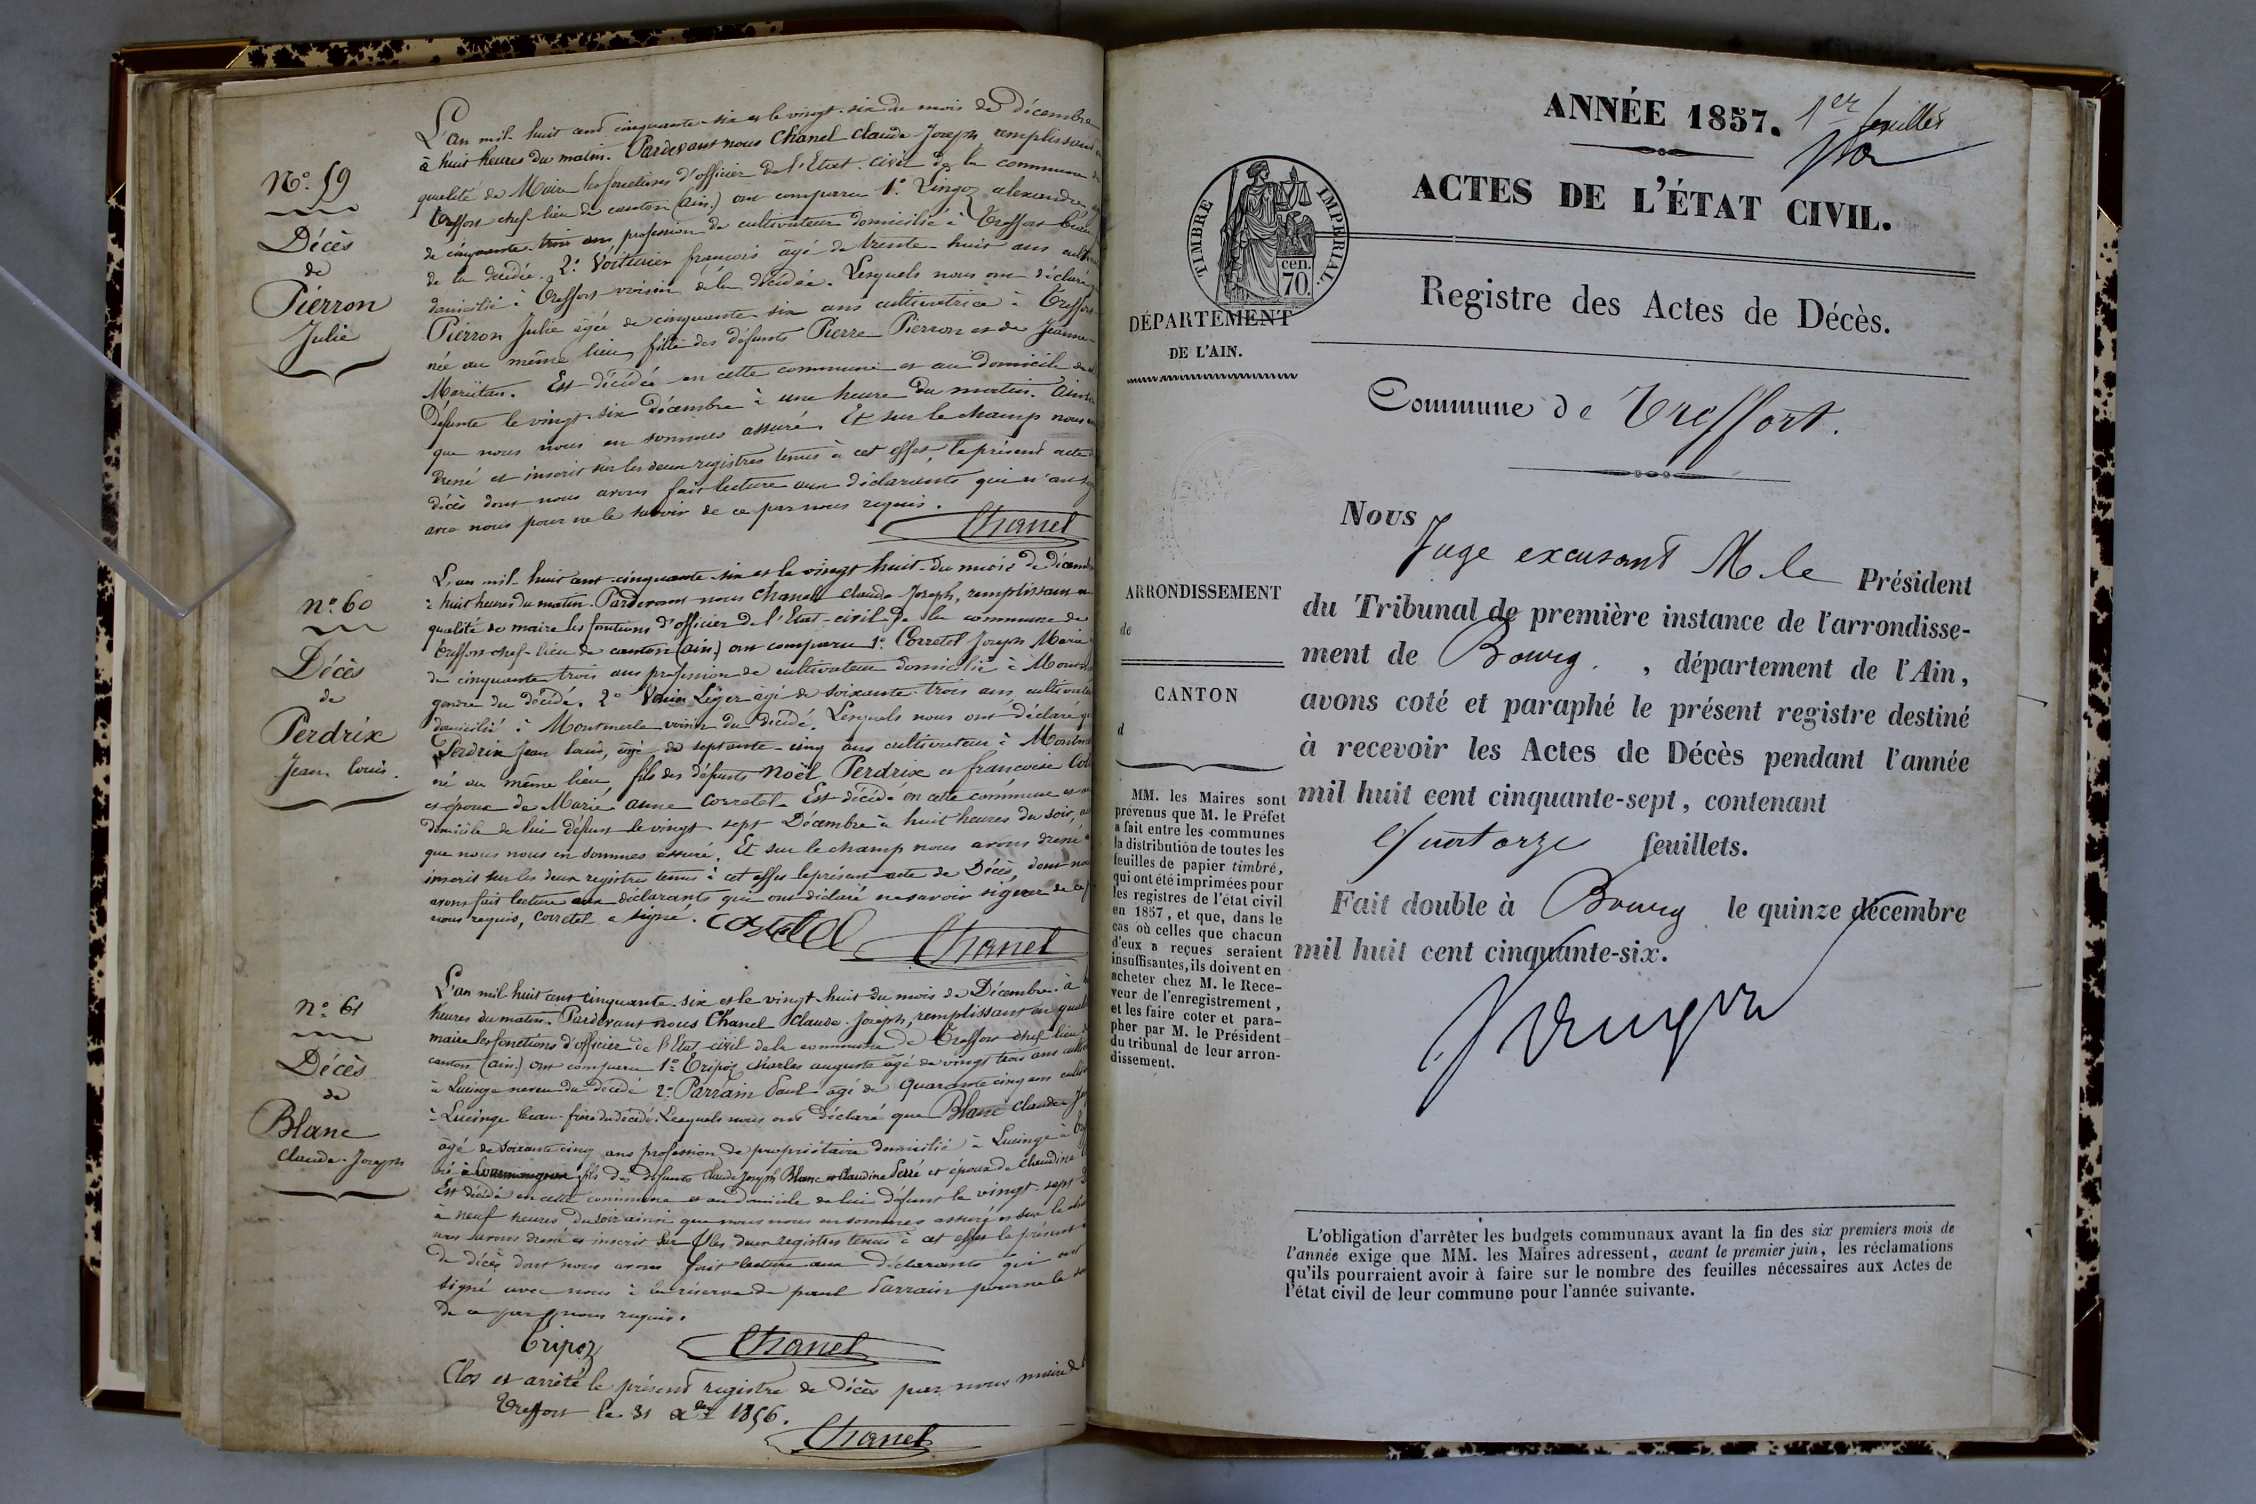 N.° 59
Décès
de
Pierron
Julie
L'an mil-huit cent cinquante-six et le vingt-six du mois de décembre
à huit heures du matin. Pardevant nous Chanel Claude-Joseph remplissant en
qualité de Maire les fonctions d'officier de l'Etat-civil de la commune de
Treffort chef-lieu de canton (ain.) ont comparu 1.° Lingoz alexandre
de cinquante-trois ans profession de cultivateur domicilié à Treffort beau
de la décédée. 2.° Voiturier françois âgé de trente-huit ans
domicilié à Treffort voisin de la décédée. Lesquels nous ont déclaré
Pierron Julie âgée de cinquante-six ans cultivatrice à Treffort
née au même lieu, fille des défunts Pierre Pierron et de Jeanne
Mariétan. Est décédée en cette commune et au domicile de
défunte le vingt-six Décembre à une heure du matin. Ainsi
que nous nous en sommes assuré. Et sur le champ nous
dressé et inscrit sur les deux registres tenus à cet effet, le présent acte
décès dont nous avons fait lecture aux déclarants qui n'ont
avec nous pour ne le savoir de ce par nous requis.
Chanel
n.° 60
Décès
de
Perdrix
Jean-louis.
L'an mil-huit cent-cinquante-six et le vingt huit du mois de décembre
à huit heures du matin. Pardevant nous Chanel Claude-Joseph, remplissant en
qualité de maire les fonctions d'officier de l'Etat-civil de la commune de
Treffort chef-lieu de canton (ain) ont comparu 1.° Corretel Joseph Marie
de cinquante trois ans profession de cultivateur domicilié à
gendre du décédé. 2.° Léger âgé de soixante-trois ans cultivateur
domicilié à Montmerle voisin du décédé. Lesquels nous ont déclaré que
Perdrix Jean louis, âgé de septante-cinq ans cultivateur à
né au même lieu, fils des défunts Noël Perdrix et francoise
et époux de Marie anne Corretel. Est décédé en cette commune et au
domicile de lui défunt le vingt-sept Décembre à huit heures du soir,
que nous nous en sommes assuré. Et sur le champ nous avons dressé
inscrit sur les deux registres tenus à cet effet le présent acte de Décès, dont nous
avons fait lecture aux déclarants qui ont déclaré ne savoir signer de ce
nous requis, Corretel a signé.
Chanel
n.° 61
Décès
de
Blanc
Claude-Joseph
L'an mil huit cent cinquante-six et le vingt-huit du mois de Décembre à
heures du matin. Pardevant nous Chanel Claude-Joseph, remplissant en
maire les fonctions d'officier de l'Etat civil de la commune de Treffort chef lieu
canton (ain.) ont comparu 1.° Tripoz Charles auguste âgé de vingt trois ans
à Lucinge neveu du décédé 2.° Parrain Paul âgé de quarante cinq ans
à Lucinge beau-frère du décédé. Lesquels nous ont déclaré que Blanc Claude
âgé de soixante cinq ans profession de propriétaire domicilié à Lucinge à
né à fils des défunts Claude Joseph Blanc et Claudine et époux de Claudine
Est décédé en cette commune et au domicile de lui défunt le vingt-sept
à neuf heures du soir ainsi que nous nous en sommes assuré et sur le
nous avons dressé et inscrit sur les deux registres tenus à cet effet le présent
de décès dont nous avons fait lecture aux déclarants qui ont
signé avec nous à la réserve de paul Parrain pour ne le
de ce par nous requis.
Tripoz Chanel
Clos et arrêté le présent registre de décès par nous maire de
Treffort le 31 Xbre 1856.
Chanel
ANNÉE 1857. 1er feuillet
ACTES DE L'ÉTAT CIVIL.
TIMBRE IMPERIAL.
cen.
70.
Registre des Actes de Décès.
DÉPARTEMENT
DE L'AIN.
Commune de Treffort.
Nous
Juge excusant M. le Président
du Tribunal de première instance de l'arrondisse-
ment de Bourg. , département de l'Ain,
avons coté et paraphé le présent registre destiné
à recevoir les Actes de Décès pendant l'année
mil huit cent cinquante-sept, contenant
Quatorze feuillets.
Fait double à Bourg le quinze décembre
mil huit cent cinquante-six.
ARRONDISSEMENT
de
CANTON
d
MM. les Maires sont
prévenus que M. le Préfet
a fait entre les communes
la distribution de toutes les
feuilles de papier timbré,
qui ont été imprimées pour
les registres de l'état civil
en 1857, et que, dans le
cas où celles que chacun
d'eux a reçues seraient
insuffisantes, ils doivent en
acheter chez M. le Rece-
veur de l'enregistrement,
et les faire coter et para-
pher par M. le Président
du tribunal de leur arron-
dissement.
L'obligation d'arrêter les budgets communaux avant la fin des six premiers mois de
l'année exige que MM. les Maires adressent, avant le premier juin, les réclamations
qu'ils pourraient avoir à faire sur le nombre des feuilles nécessaires aux Actes de
l'état civil de leur commune pour l'année suivante.